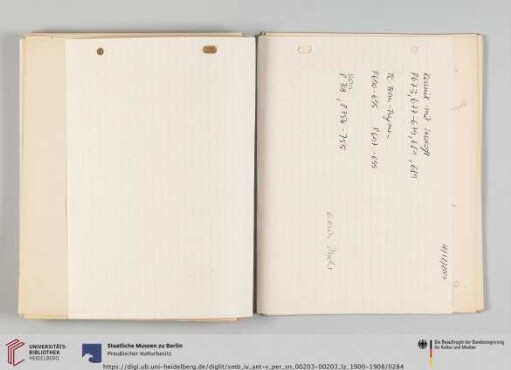 Keramik mit Inschrift
P 673, 677-679, 681, 685
TC-Bran-Fragmen
P 690-695 P 697-699
von
P 718, P 754-755
UNIVERSITÄTS-
BIBLIOTHEK
HEIDELBERG
Staatliche Museen zu Berlin
Preußischer Kulturbesitz
Die Beauftragte der Bundesregierung
für Kultur und Medien
https://digi.ub.uni-heidelberg.de/diglit/smb_iv_ant-v_per_sn_00203-00203_lz_1900-1908/0284